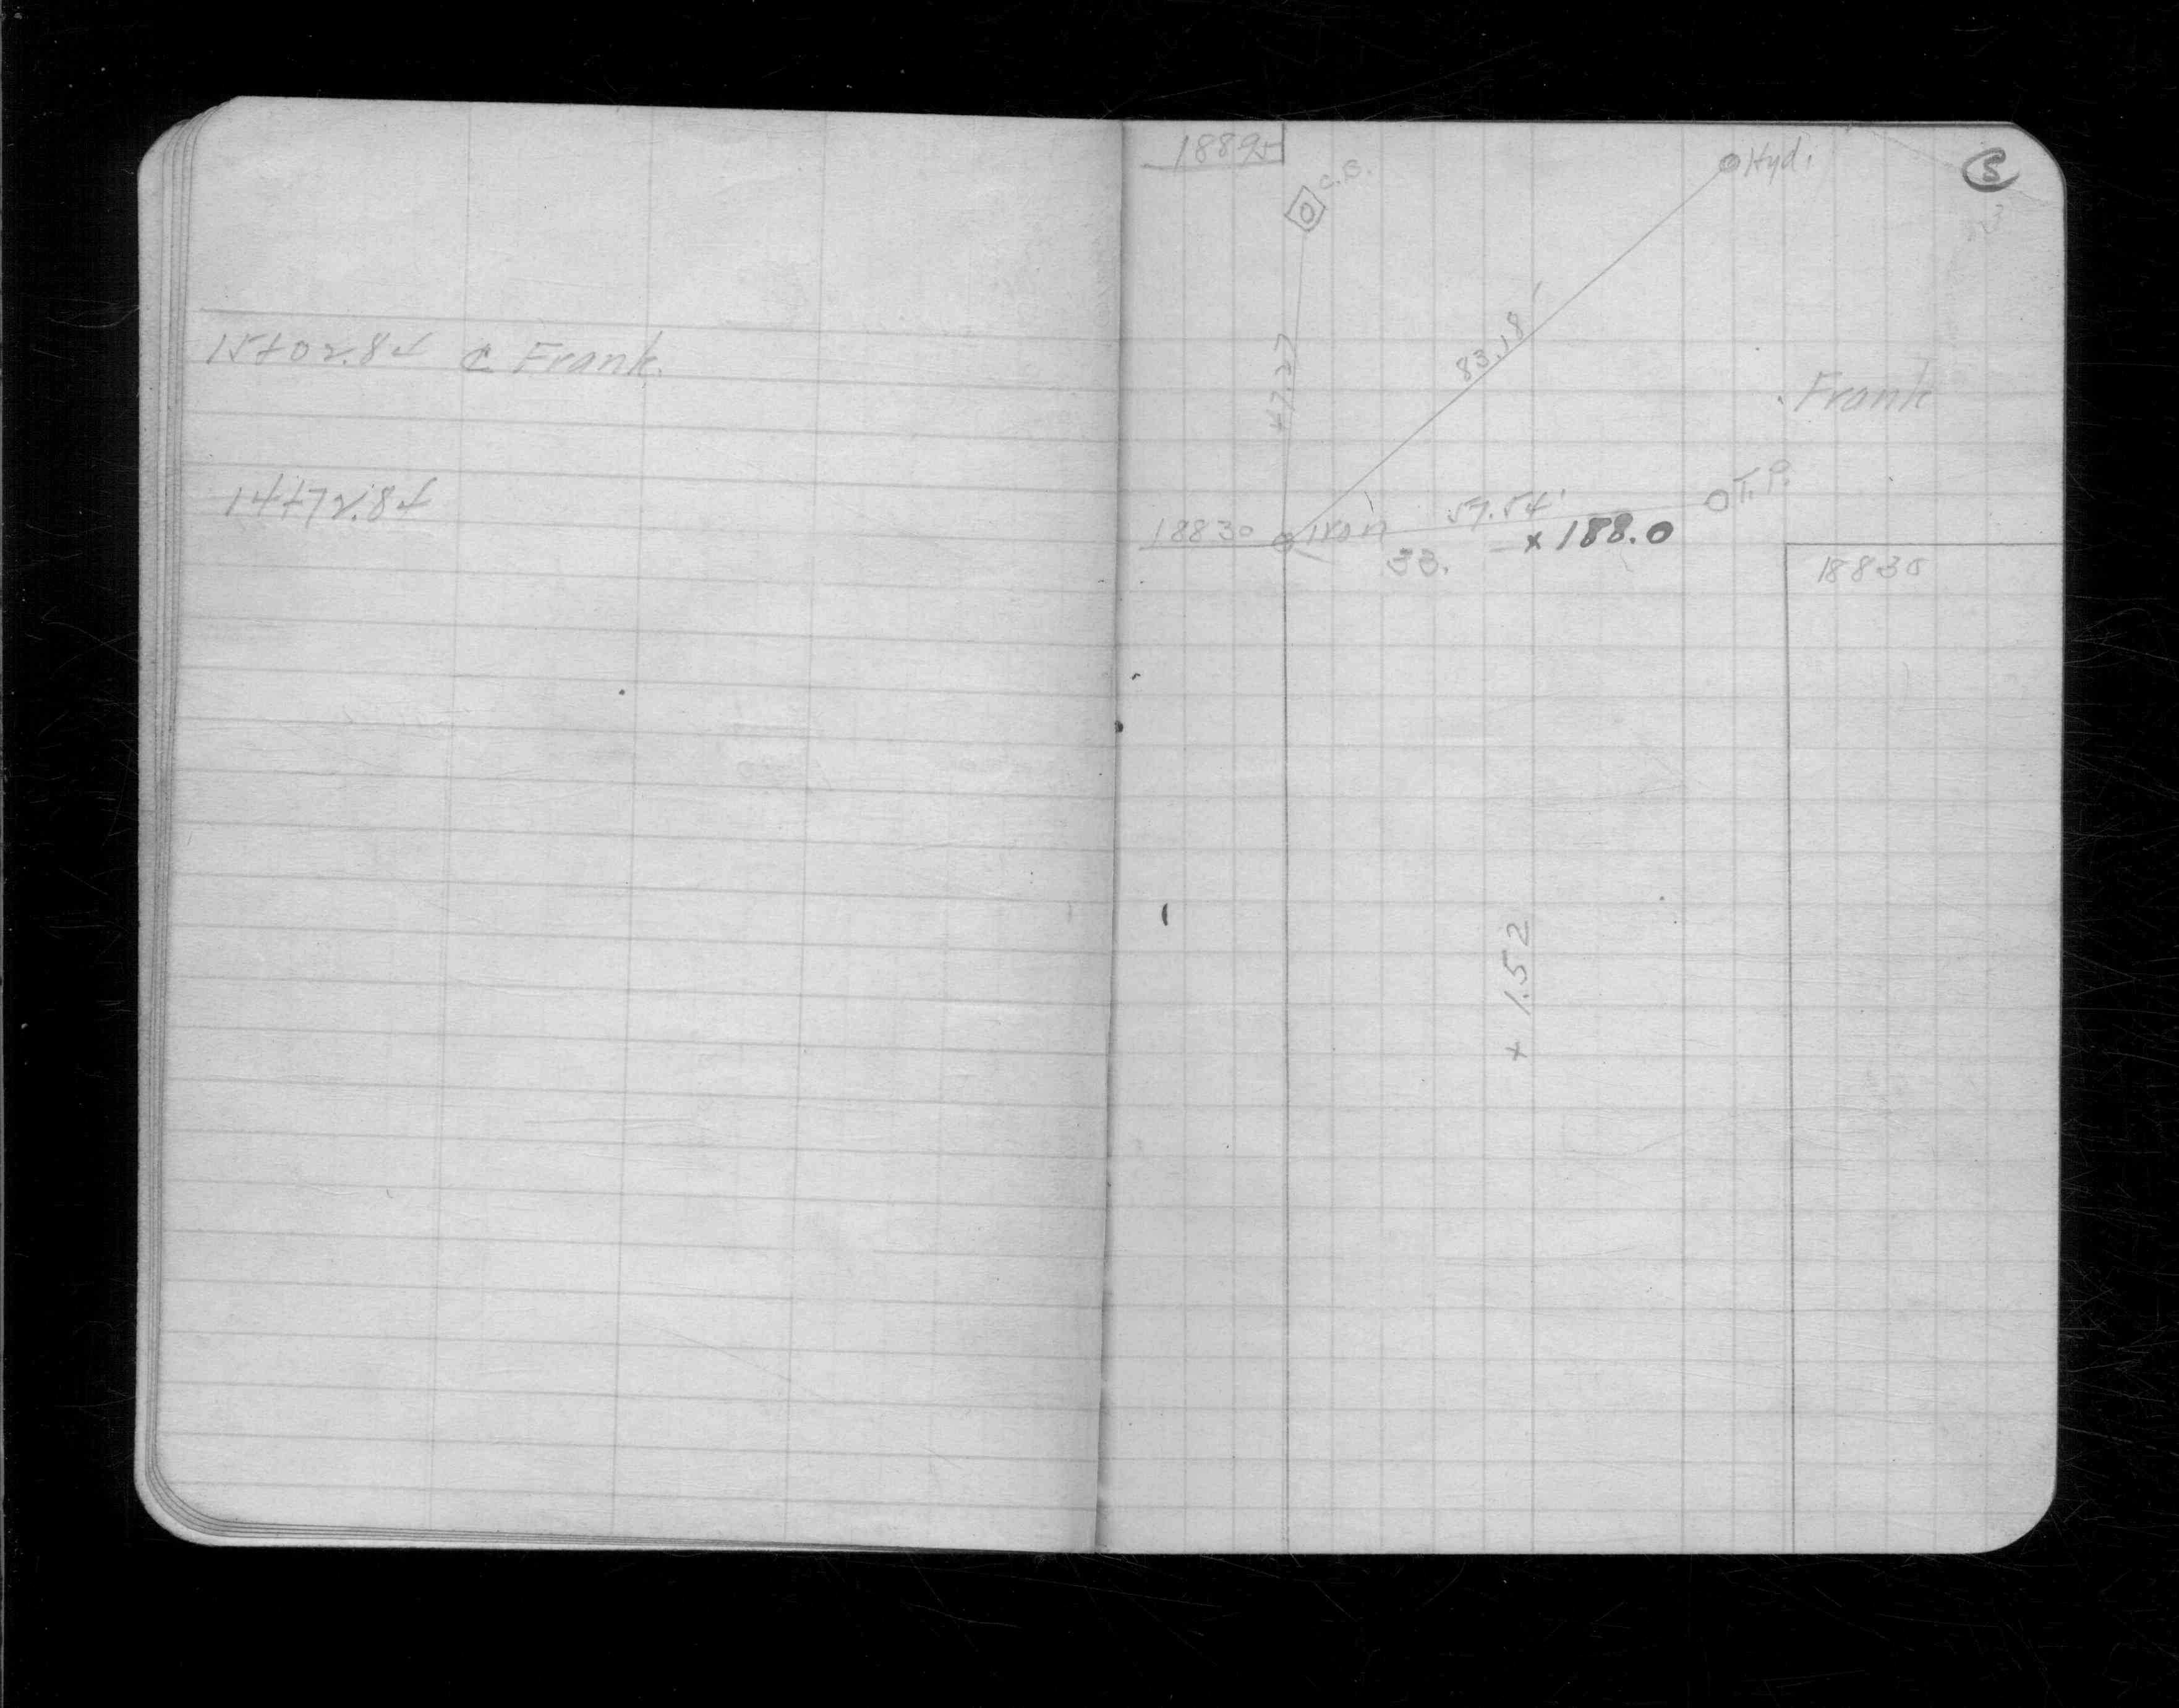 15+02.85 ₵ Frank.
14+72.85
18895
C.B.
Hyd.
5
47.27
83.18'
Frank
18830
Iron
57.54'
T.P.
33.
x 188.0
18830
+ 1.52